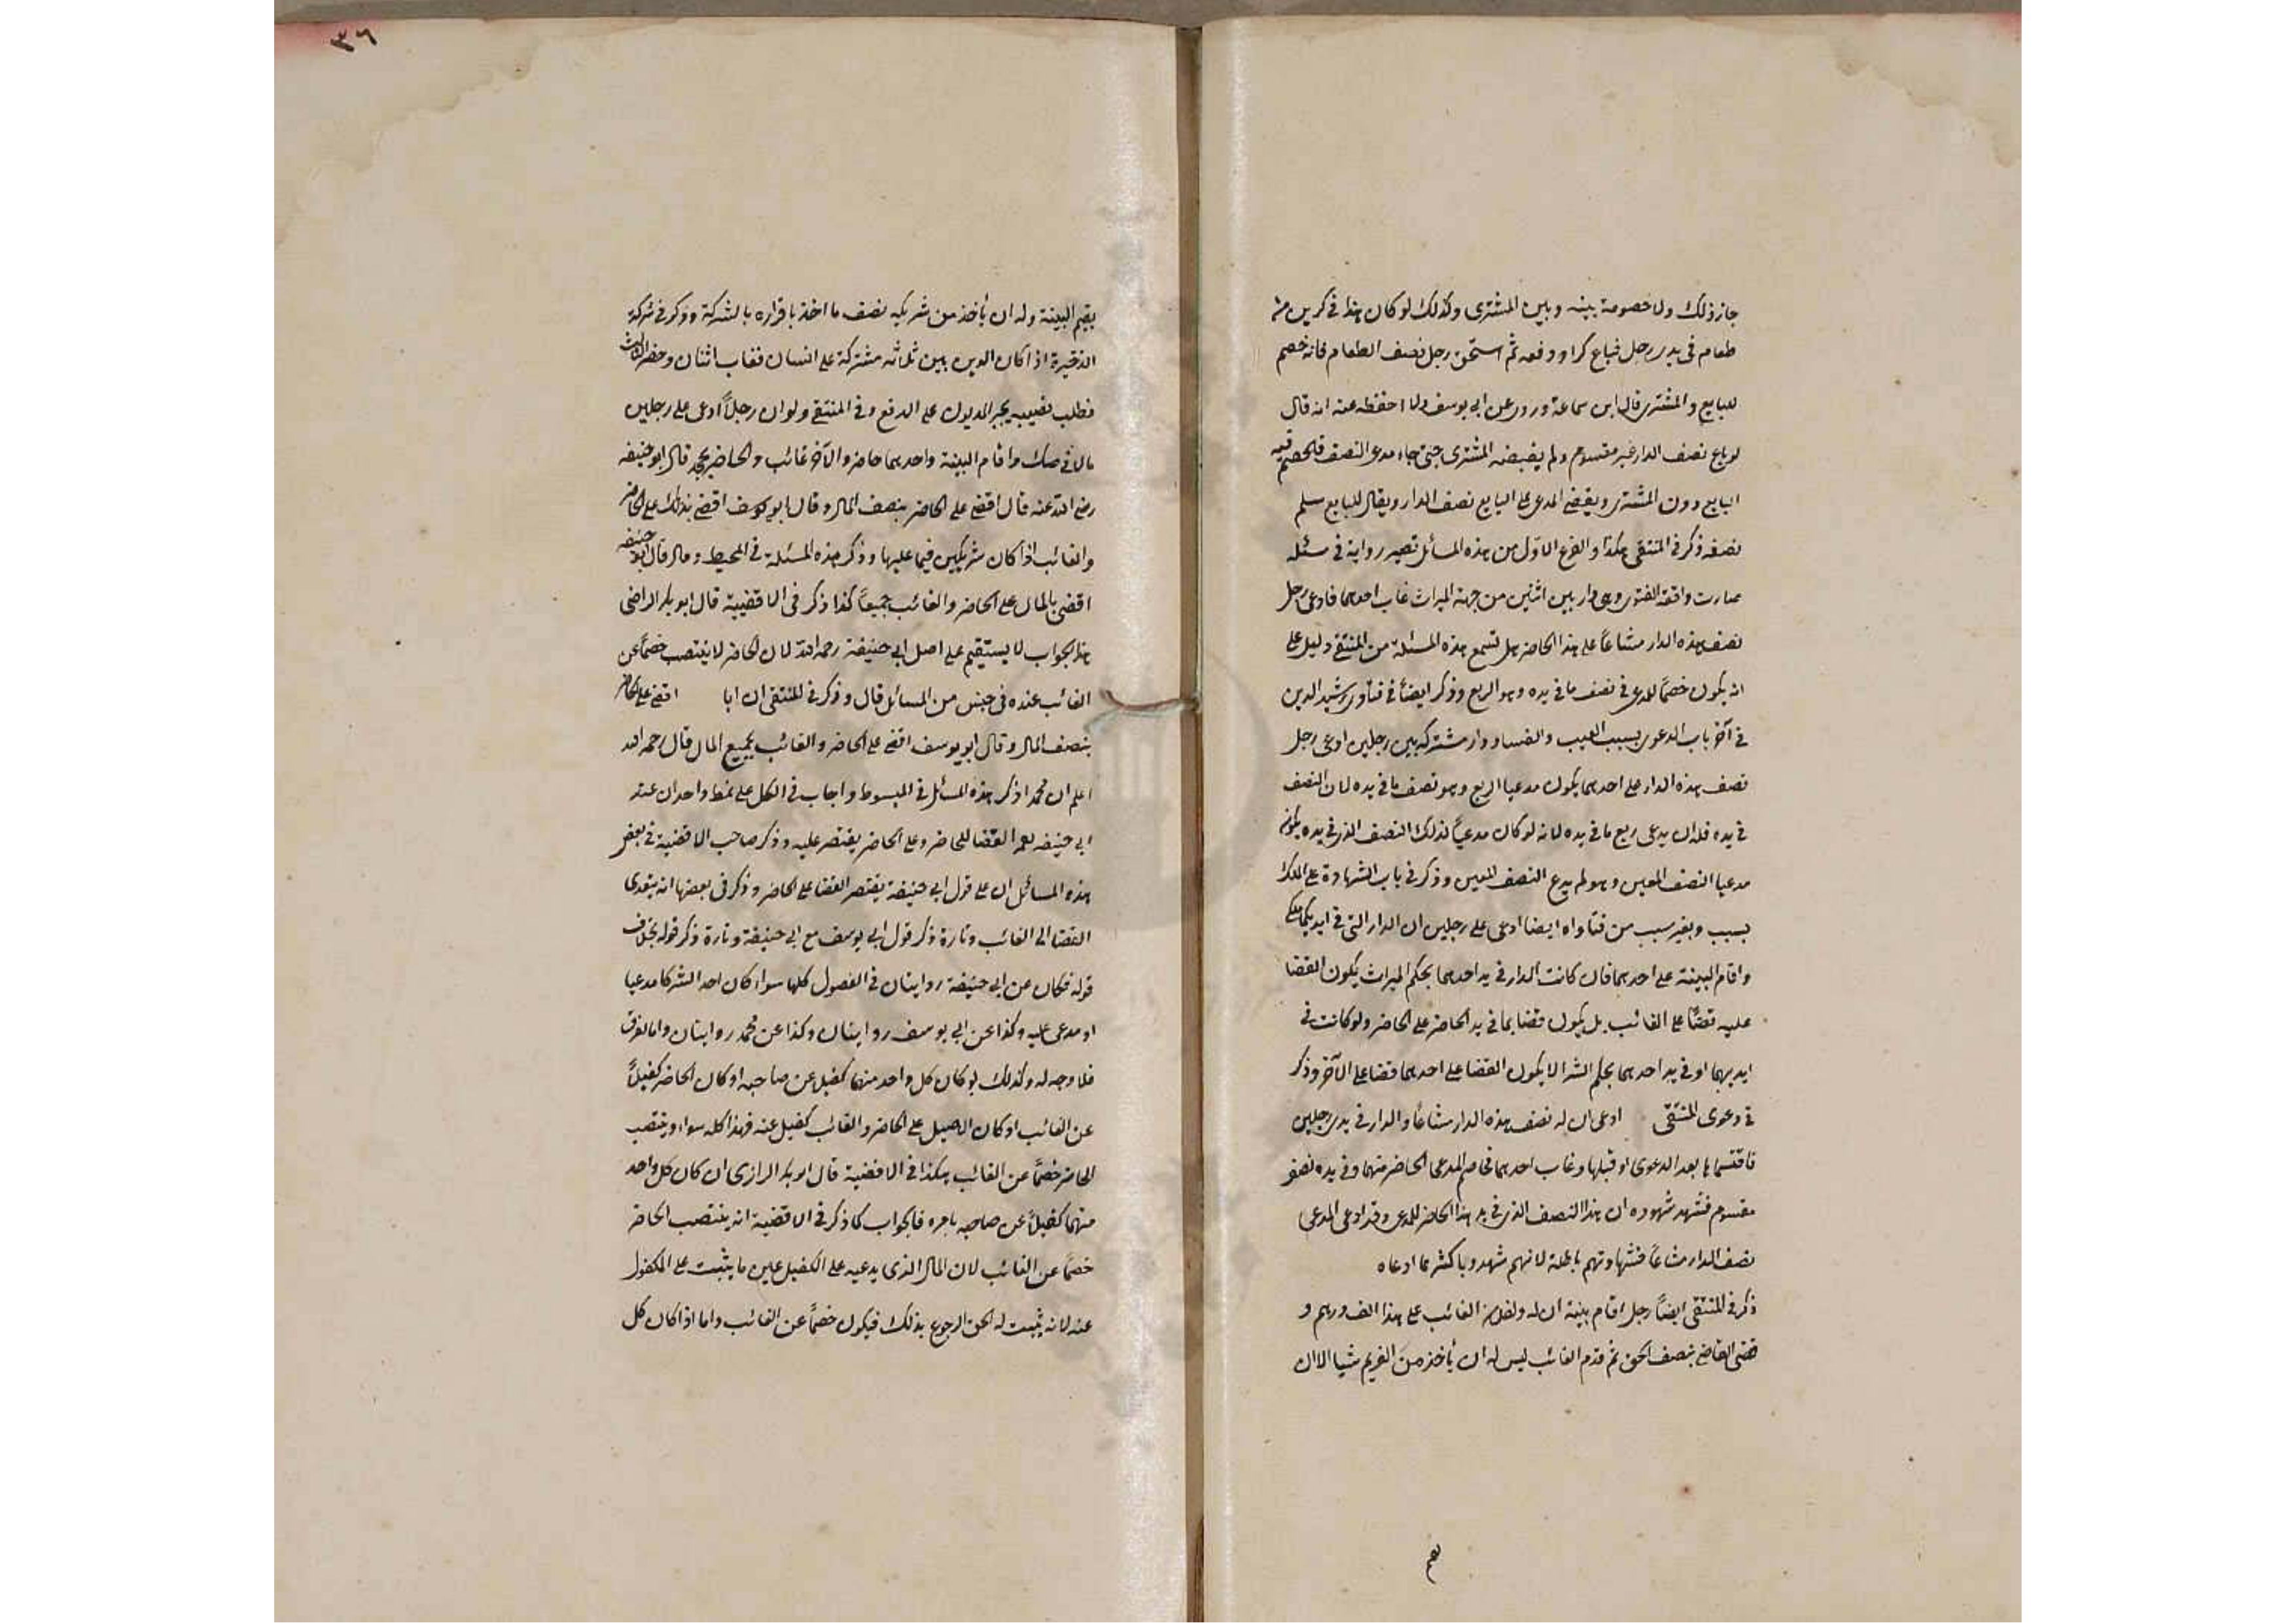 جاز ذلك ولا خصومة بينه وبين المشترى وكذلك لو كان هذا فى كرين من
طعام فى يدى رجل فباع كرا ودفعه ثم استحق رجل نصف الطعام فانه خصم
للبايع والمشترى قال ابن سماعة وروى عن ابى يوسف ولا احفظه عنه انه قال
لو باع نصف الدار غير مقسوم ولم يقبضه المشترى حتى جاء مدعى النصف فالخصم فيه
البايع دون المشترى ويقضى للمدعى على البايع نصف الدار ويقال للبايع سلم
نصفه ذكر فى المنتقى هكذا والفرع الاول من هذه المسائل تصير رواية فى مسئلة
صارت واقعة الفتوى وهى دار بين اثنين من جهة الميراث غاب احدهما فادعى رجل
نصف هذه الدار مشاعاً على هذا الحاضر هل تسمع هذه المسئلة من المنتقى دليل على
انه يكون خصماً للمدعى فى نصف ما فى يده وهو الربع وذكر ايضاً فى فتاوى رشيد الدين
فى آخر باب الدعوى بسبب العيب والفساد دار مشتركة بين رجلين ادعى رجل
نصف هذه الدار على احدهما يكون مدعيا الربع وهو نصف ما فى يده لان النصف
فى يده فله ان يدعى ربع ما فى يده لانه لو كان مدعياً لذلك النصف الذى فى يده يكون
مدعيا النصف المعين وهو لم يدع النصف المعين وذكر فى باب الشهادة على الملك
بسبب وبغير سبب من فتاواه ايضا ادعى على رجلين ان الدار التى فى ايديكما ملكى
واقام البينة على احدهما قال كانت الدار فى يد احدهما بحكم الميراث يكون القضا
عليه قضاً على الغائب بل يكون قضا بما فى يد الحاضر على الحاضر ولو كانت فى
ايديهما او فى يد احدهما بحكم الشرا لا يكون القضا على احدهما قضا على الآخر وذكر
فى دعوى المنتقى ادعى ان له نصف هذه الدار مشاعاً والدار فى يدى رجلين
فاقتسماها بعد الدعوى او قبلها وغاب احدهما فخاصم المدعى الحاضر منهما وفى يده نصف
مقسوم فشهد شهوده ان هذا النصف الذى فى يد هذا الحاضر للمدعى وقد ادعى المدعى
نصف الدار مشاعاً فشهادتهم باطلة لانهم شهدوا باكثر مما ادعاه
ذكر فى المنتقى ايضاً رجل اقام بينة ان له ولفلان الغائب على هذا الف درهم و
قضى القاضى بنصف الحق ثم قدم الغائب ليس له ان يأخذ من الغريم شيا الا ان
يقيم
٣٦
يقيم البينة وله ان يأخذ من شريكه نصف ما اخذ باقراره بالشركة وذكر فى شركة
الذخيرة اذا كان الدين بين ثلاثة مشتركة على انسان فغاب اثنان وحضر الثالث
فطلب نصيبه يجبر المديون على الدفع وفى المنتقى ولو ان رجلاً ادعى على رجلين
مالا فى صك واقام البينة واحدهما حاضر والآخر غائب والحاضر يجحد قال ابو حنيفة
رضى الله عنه قال اقضى على الحاضر بنصف المال وقال ابو يوسف اقضى بذلك على الحاضر
والغائب اذا كان شريكين فيما عليها وذكر هذه المسئلة فى المحيط وقال قال ابو حنيفة
اقضى بالمال على الحاضر والغائب جميعاً كذا ذكر فى الاقضية قال ابو بكر الراضى
هذا الجواب لا يستقيم على اصل ابى حنيفة رحمه الله لان الحاضر لا ينتصب خصماً عن
الغائب عنده فى جنس من المسائل قال وذكر فى المنتقى ان ابا اقضى على الحاضر
بنصف المال وقال ابو يوسف اقضى على الحاضر والغائب بجميع المال قال رحمه الله
اعلم ان محمدا ذكر هذه المسائل فى المبسوط واجاب فى الكل على نمط واحد ان عند
ابى حنيفة القضا للحاضر وعلى الحاضر يقتصر عليه وذكر صاحب الاقضية فى بعض
هذه المسائل ان على قول ابى حنيفة يقتصر القضا على الحاضر وذكر فى بعضها انه يتعدى
القضا الى الغائب وتارة ذكر قول ابى يوسف مع ابى حنيفة وتارة ذكر قوله بخلاف
قوله فكان عن ابى حنيفة روايتان فى الفصول كلها سواء كان احد الشركا مدعيا
او مدعى عليه وكذا عن ابى يوسف روايتان وكذا عن محمد روايتان واما الفرق
فلا وجه له وكذلك لو كان كل واحد منهما كفيل عن صاحبه او كان الحاضر كفيلاً
عن الغائب او كان الاصيل على الحاضر والغائب كفيل عنه فهذا كله سواء وينتصب
الحاضر خصماً عن الغائب هكذا فى الاقضية قال ابو بكر الرازى ان كان كل واحد
منهما كفيلاً عن صاحبه بامره فالجواب كما ذكر فى الاقضية انه ينتصب الحاضر
خصماً عن الغائب لان المال الذى يدعيه على الكفيل عين ما يثبت على المكفول
عنه لانه يثبت له الحق الرجوع بذلك فيكون خصماً عن الغائب واما اذا كان كل